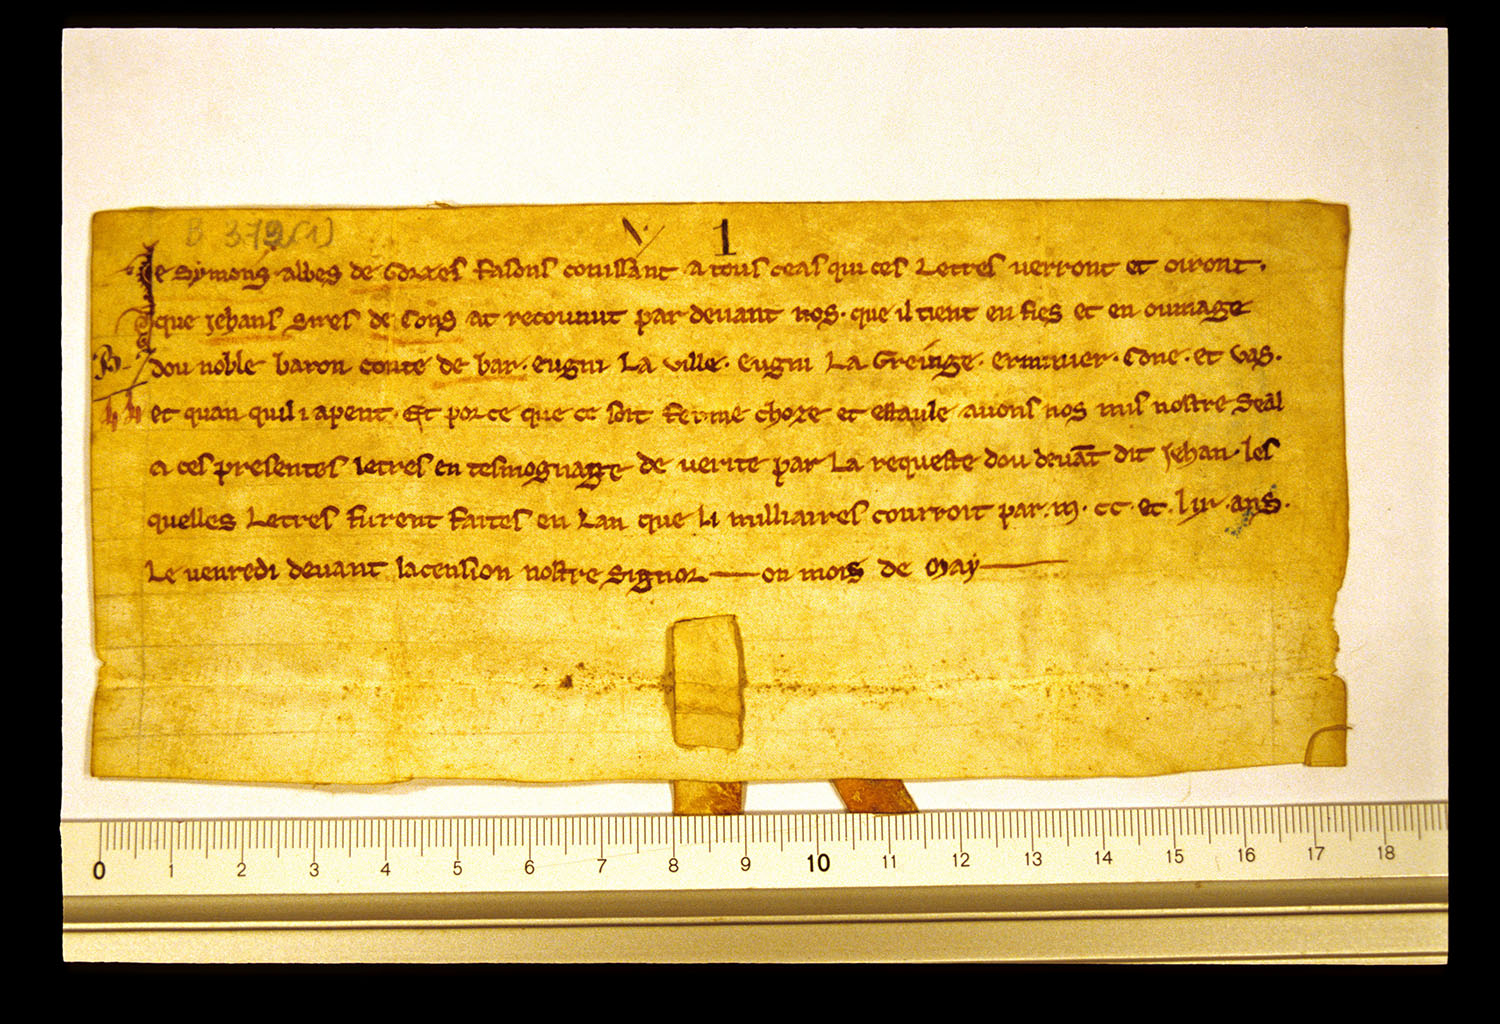 B 379(1)
V 1
Je Symons abbes de Gorzes fasons conissant a tous ceas qui ces Lettres verront et oiront.
que Jehans sires de Cons at reconnut par devant nos. que il tient en fies et en omage
B. dou noble baron conte de bar. eugni La ville. eugni La Greinge. Cone. et vas.
et quan quil i apent. Et por ce que ce soit ferme choze et estaule avons nos mis nostre Seal
a ces presentes letres en tesmognatge de verite par La requeste dou devāt dit Jehan. les
quelles Letres furent faites en Lan que li milliaires corroit par. m. cc. et. liiii. ans.
Le venredi devant lacension nostre Signor on mois de May
0 1 2 3 4 5 6 7 8 9 10 11 12 13 14 15 16 17 18